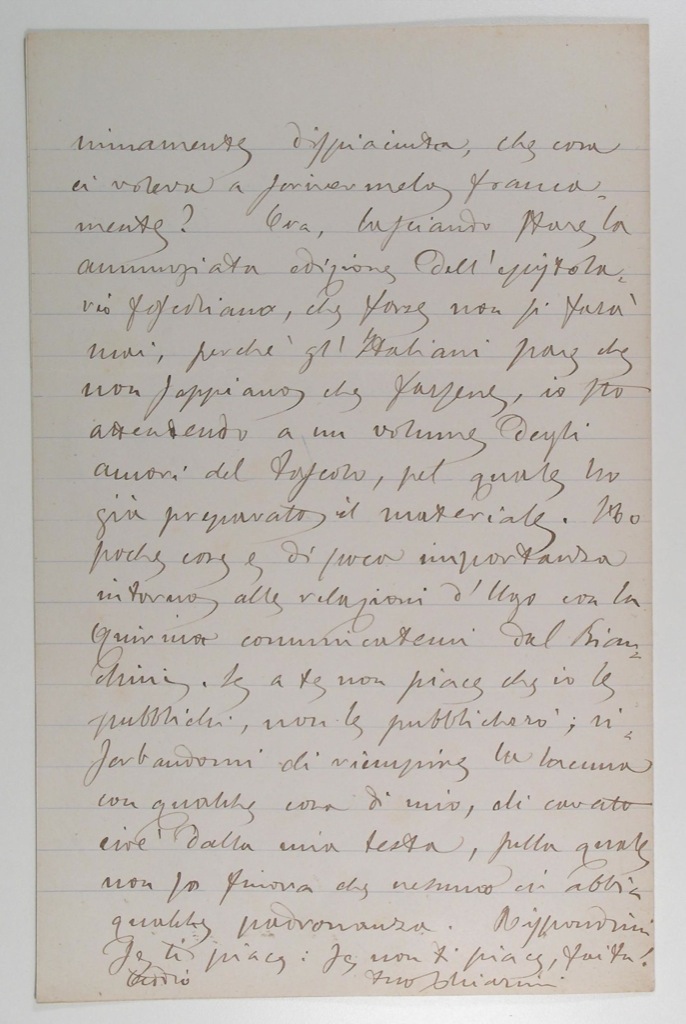 nimamente dispiaciuta, che cosa
ci voleva a scrivermelo franca-
mente? Ora, lasciando stare la
annunziata edizione dell'epistola-
rio foscoliano, che forse non si farà
mai, perchè gl'Italiani pare che
non sappiano che farsene, io sto
attendendo a un volume degli
amori del Foscolo, pel quale ho
già preparato il materiale. Ho
poche cose e di poca importanza
intorno alle relazioni d'Ugo con la
Quirina comunicatemi dal Bian-
chini. Se a te non piace che io le
pubblichi, non le pubblicherò; ri-
serbandomi di riempire la lacuna
con qualche cosa di mio, di cavato
cioè dalla mia testa, sulla quale
non so finora che nessuno ci abbia
qualche padronanza. Rispondimi
se ti piace: se non ti piace, fai tu!
Addio tuo Chiarini